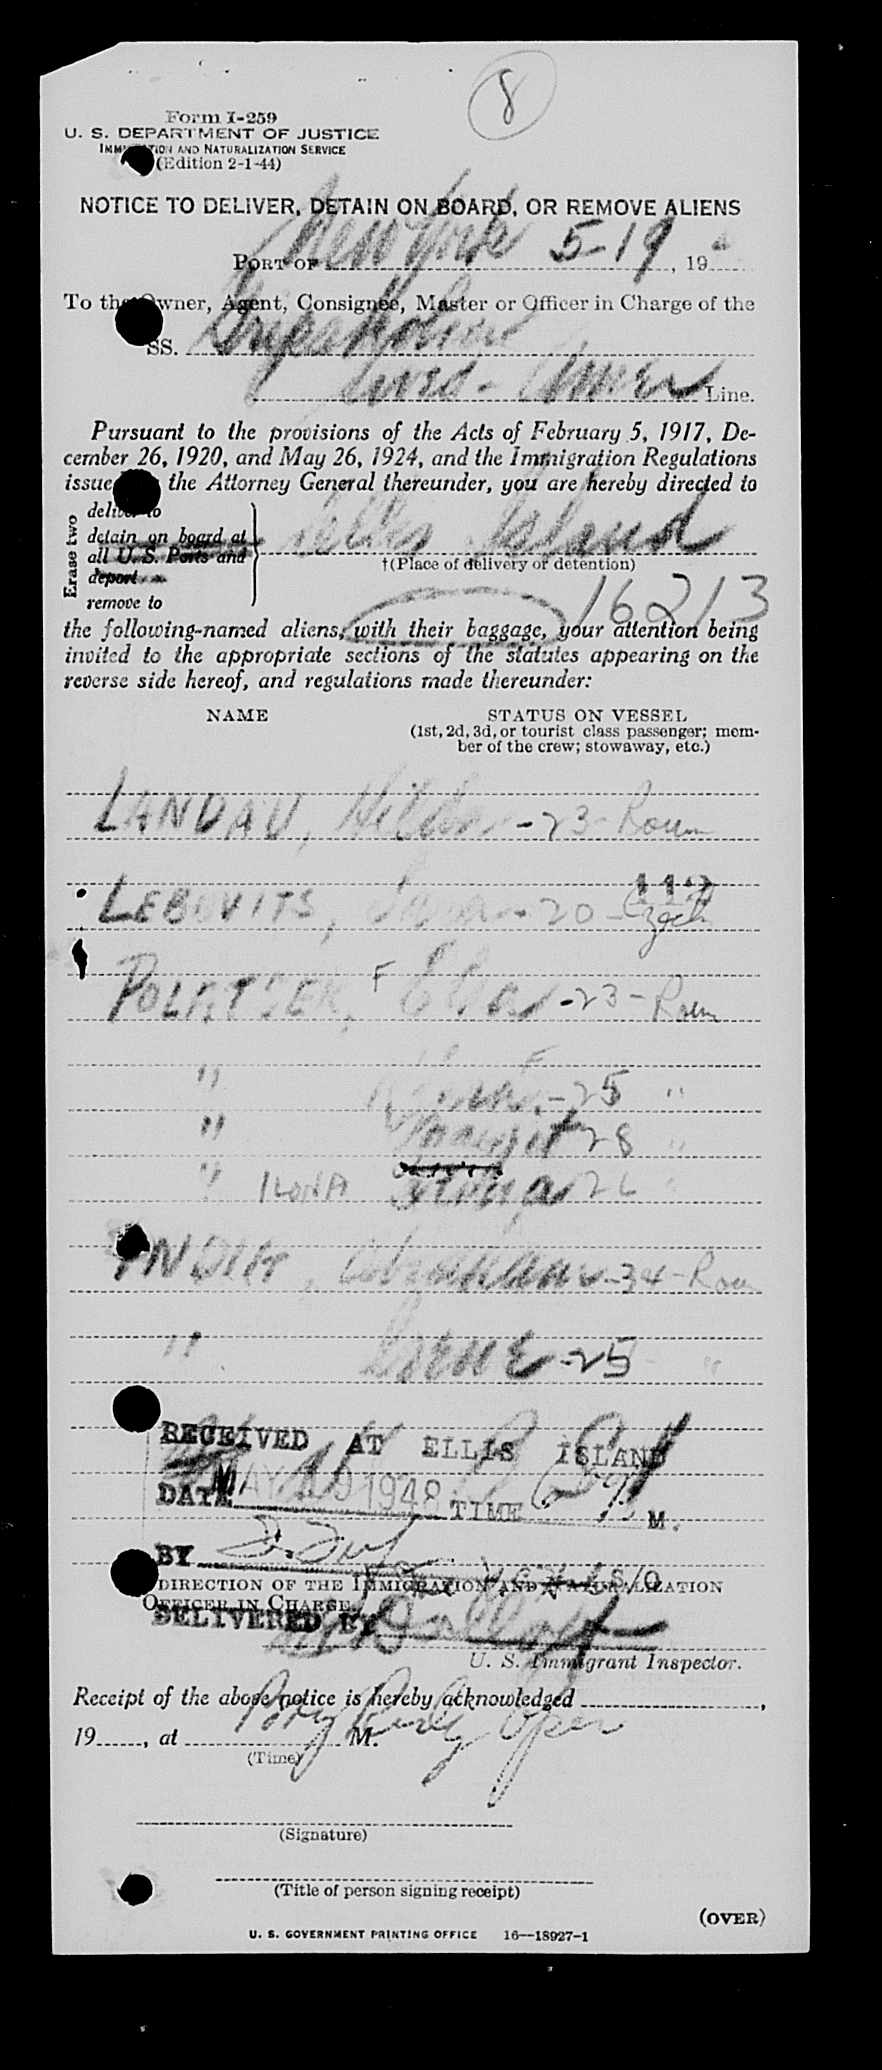 8
Form I-259
U. S. DEPARTMENT OF JUSTICE
IMMIGRATION AND NATURALIZATION SERVICE
(Edition 2-1-44)
NOTICE TO DELIVER, DETAIN ON BOARD, OR REMOVE ALIENS
PORT OF New York 5-19, 19
To the Owner, Agent, Consignee, Master or Officer in Charge of the
SS. Gripsholm
Swed- Amer Line.
Pursuant to the provisions of the Acts of February 5, 1917, De-
cember 26, 1920, and May 26, 1924, and the Immigration Regulations
issued the Attorney General thereunder, you are hereby directed to
Erase two
deliver to
detain on board at
all U. S. Ports and
deport
remove to
Ellis Island
†(Place of delivery or detention)
16213
the following-named aliens, with their baggage, your attention being
invited to the appropriate sections of the statutes appearing on the
reverse side hereof, and regulations made thereunder:
NAME STATUS ON VESSEL
(1st, 2d, 3d, or tourist class passenger; mem-
ber of the crew; stowaway, etc.)
LANDAU, Hilda -23- Roum
112
LEBOVITS, -20- Czech
F -23- Roum
" F -25 "
" Margit 28 "
" ILONA 26 "
-34- Roum
" -25 "
RECEIVED AT ELLIS ISLAND
DATE MAY 19 1948 TIME M.
BY
DIRECTION OF THE IMMIGRATION AND NATURALIZATION
OFFICER IN CHARGE
DELIVERED BY
U. S. Immigrant Inspector.
Receipt of the above notice is hereby acknowledged ,
19 , at M.
(Time)
(Signature)
(Title of person signing receipt)
(OVER)
U. S. GOVERNMENT PRINTING OFFICE 16—18927-1